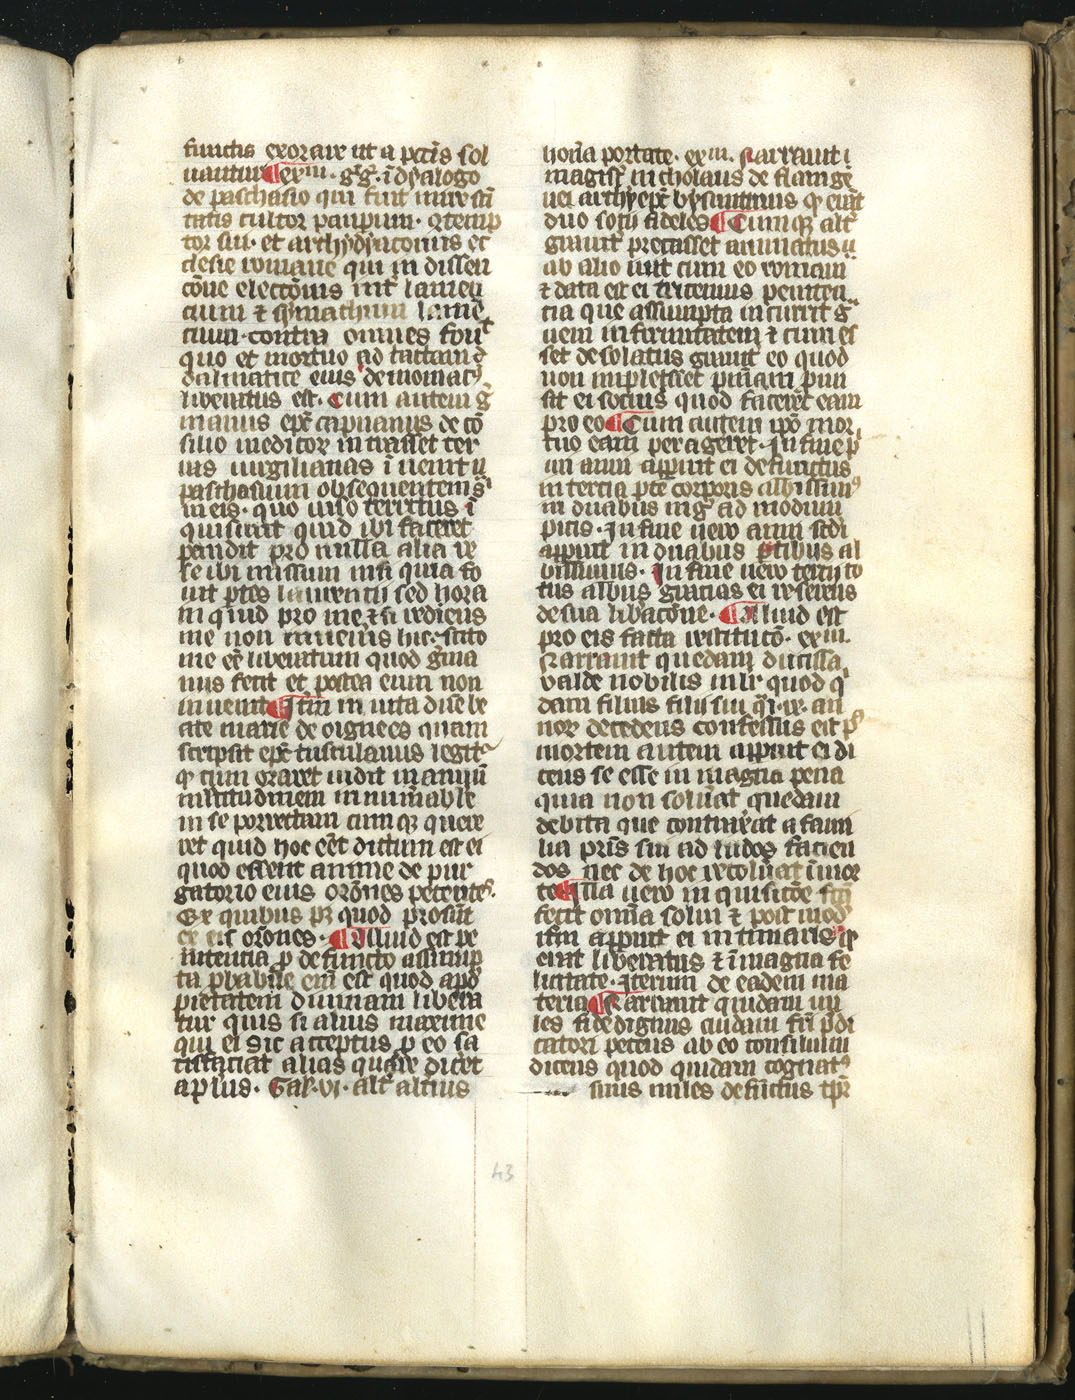 functis exorare ut a pctīs sol
uantur ¶ exm̄. gͥg. ī dyalogo
de paschasio qui fuit mire scī
tatis cultor paupum. ɔtemp
tor sui. et archydyaconus ec
clesie romane qui in dissen
cōne electōnis int̄ lauren
cium ⁊ symachum laurē
cium contra omnes fouit
quo et mortuo ad tactum d̄
dalmatice eius demoniacꝰ
liberatus est. Cum autem ḡ
manus ep̄c capuanus de cō
silio medicor intrasset ter
mas uirgilianas ī uenit ii
paschasium obsequentem sͥ
in eis. quo uiso territus ī
quisiuit quid ibi faceret
pandit pro nulla alia re
se ibi missum nisi quia fo
uit p̄tes laurentij sed hora
in quid pro me ⁊ si rediens
me non inueneris hic. scito
me eē liberatum quod ḡma
nus fecit et postea eum non
inuenit ¶ Itm̄ in uita dn̄e be
ate marie de oignees quam
scripsit ep̄c tusculanus legitͬ
ꝙ cum oraret uidit manuū
multitudinem innumable
in se porrectam cumqꝫ quere
ret quid hoc eēt dictum est ei
quod essent anime de pur
gatorio eius orōnes petentes.
Ex quibus pꝫ quod prosūt
eis orōnes. ¶ Aliud est pe
nitentia p̄ defuncto assump
ta pbabile enī est quod apd̄
pietatem diuinam libera
tur quis si alius maxime
qui ei sic acceptus p eo sa
tisfaciat alias quare dicēt
aplus. Gal. vi. alt̄ altius
hon̄a portate. exm̄. Narrauit ī
magisͬ nicholaus de flaingͥ
uel archyep̄c bysuntinus ꝙ erāt
duo socij fideles ¶ Cumqꝫ alt̄
grauit̄ peccasset animatus
ab alio iuit cum eo romam
⁊ data est ei tricennis peniten
cia que assumpta incurrit ḡ
uem infirmitatem ⁊ cum es
set desolatus grauit̄ eo quod
non implesset pn̄iam p̄mi
sit ei socius quod faceret eam
pro eo ¶ Cum autem ip̄o mor
tuo eam perageret. In fine p̄
mi anni apparuit ei defunctus
in tercia pte corporis albissimꝰ
in duabus nigͬ ad modum
picis. In fine uero anni scdi
apparuit in duabus p̄tibus al
bissimus. In fine uero tercij to
tus albus gracias ei referens
de sua libacōne. ¶ Aliud est
pro eis facta restitucō. exm̄.
Narrauit quedam ducissa
valde nobilis mlr̄ quod q̄
dam filius filij sui q̄i. ix. an
nor decedens confessus est pͦ
mortem autem apparuit ei di
cens se esse in magna pena
quia non soluat quedam
debita que contraxerat a fami
lia pris sui ad ludos facien
dos nec de hoc recoluat ī mor
te ¶ Illa uero in quisicōe fcā
fecit omīa solui ⁊ post mod̄
itm̄ apparuit ei intimans ꝙ
erat liberatus ⁊ ī magna fe
licitate. Iterum de eadem ma
teria ¶ Narrauit quidam mi
les fide dignus cuidam fr̄i p̄di
catori petens ab eo consilium
dicens quod quidam cognatꝰ
suus miles defūctus tp̄r
43